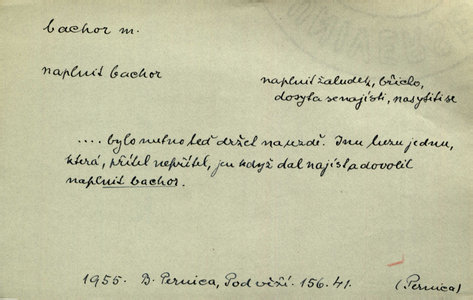 bachor m.
naplnit bachor
naplnit žaludek, břicho,
dosyta se najísti, nasytiti se
.... bylo nutno teď držet na uzdě. Inu luzu jednu,
která, přítel nepřítel, jen když dal najíst a dovolil
naplnit bachor.
1955. B. Pernica, Pod věží. 156.41. (Pernica)